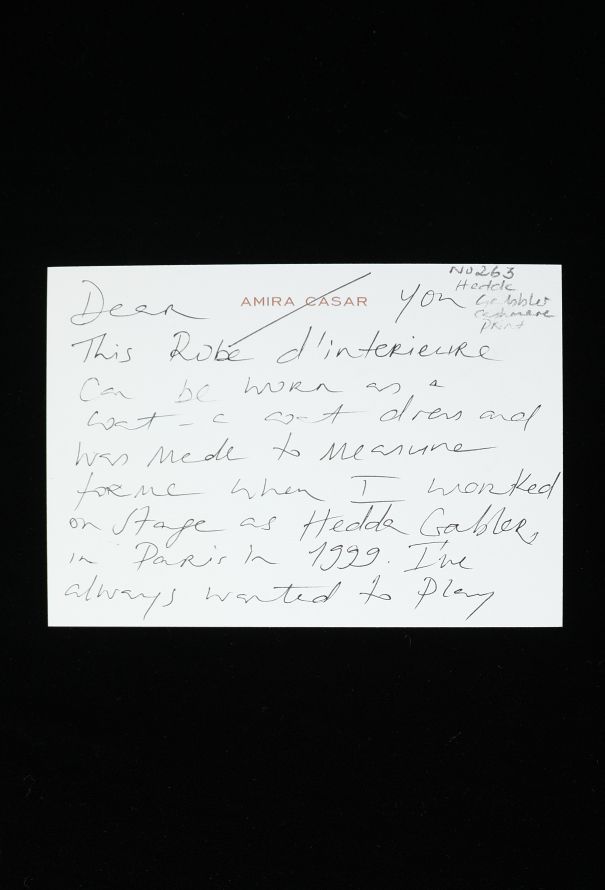 No 263
Hedda
Gabbler
cashmere
Print
Dear AMIRA CASAR you
This Robe d'interieure
Can be worn as a
coat - a coat dress and
was made to measure
for me when I worked
on Stage as Hedda Gabler,
in Paris in 1999. I've
always wanted to Play